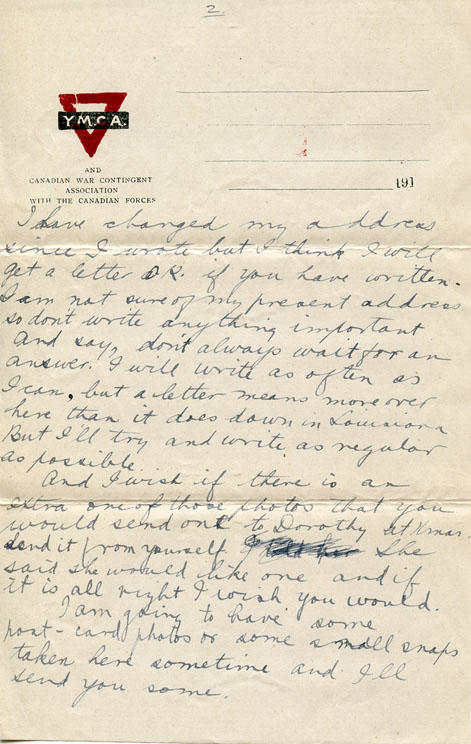 2
Y.M.C.A.
AND
CANADIAN WAR CONTINGENT
ASSOCIATION
WITH THE CANADIAN FORCES
191
I have changed my address
since I wrote but I think I will
get a letter O.K. if you have written.
I am not sure of my present address
so don't write anything important
And say, don't always wait for an
answer. I will write as often as
I can, but a letter means more over
here than it does down in Louisiana
But I'll try and write as regular
as possible.
And I wish if there is an
extra one of those photos that you
would send one to Dorothy at Xmas.
Send it from yourself. She
said she would like one and if
it is all right I wish you would.
I am going to have some
post-card photos or some small snaps
taken here sometime and I'll
send you some.